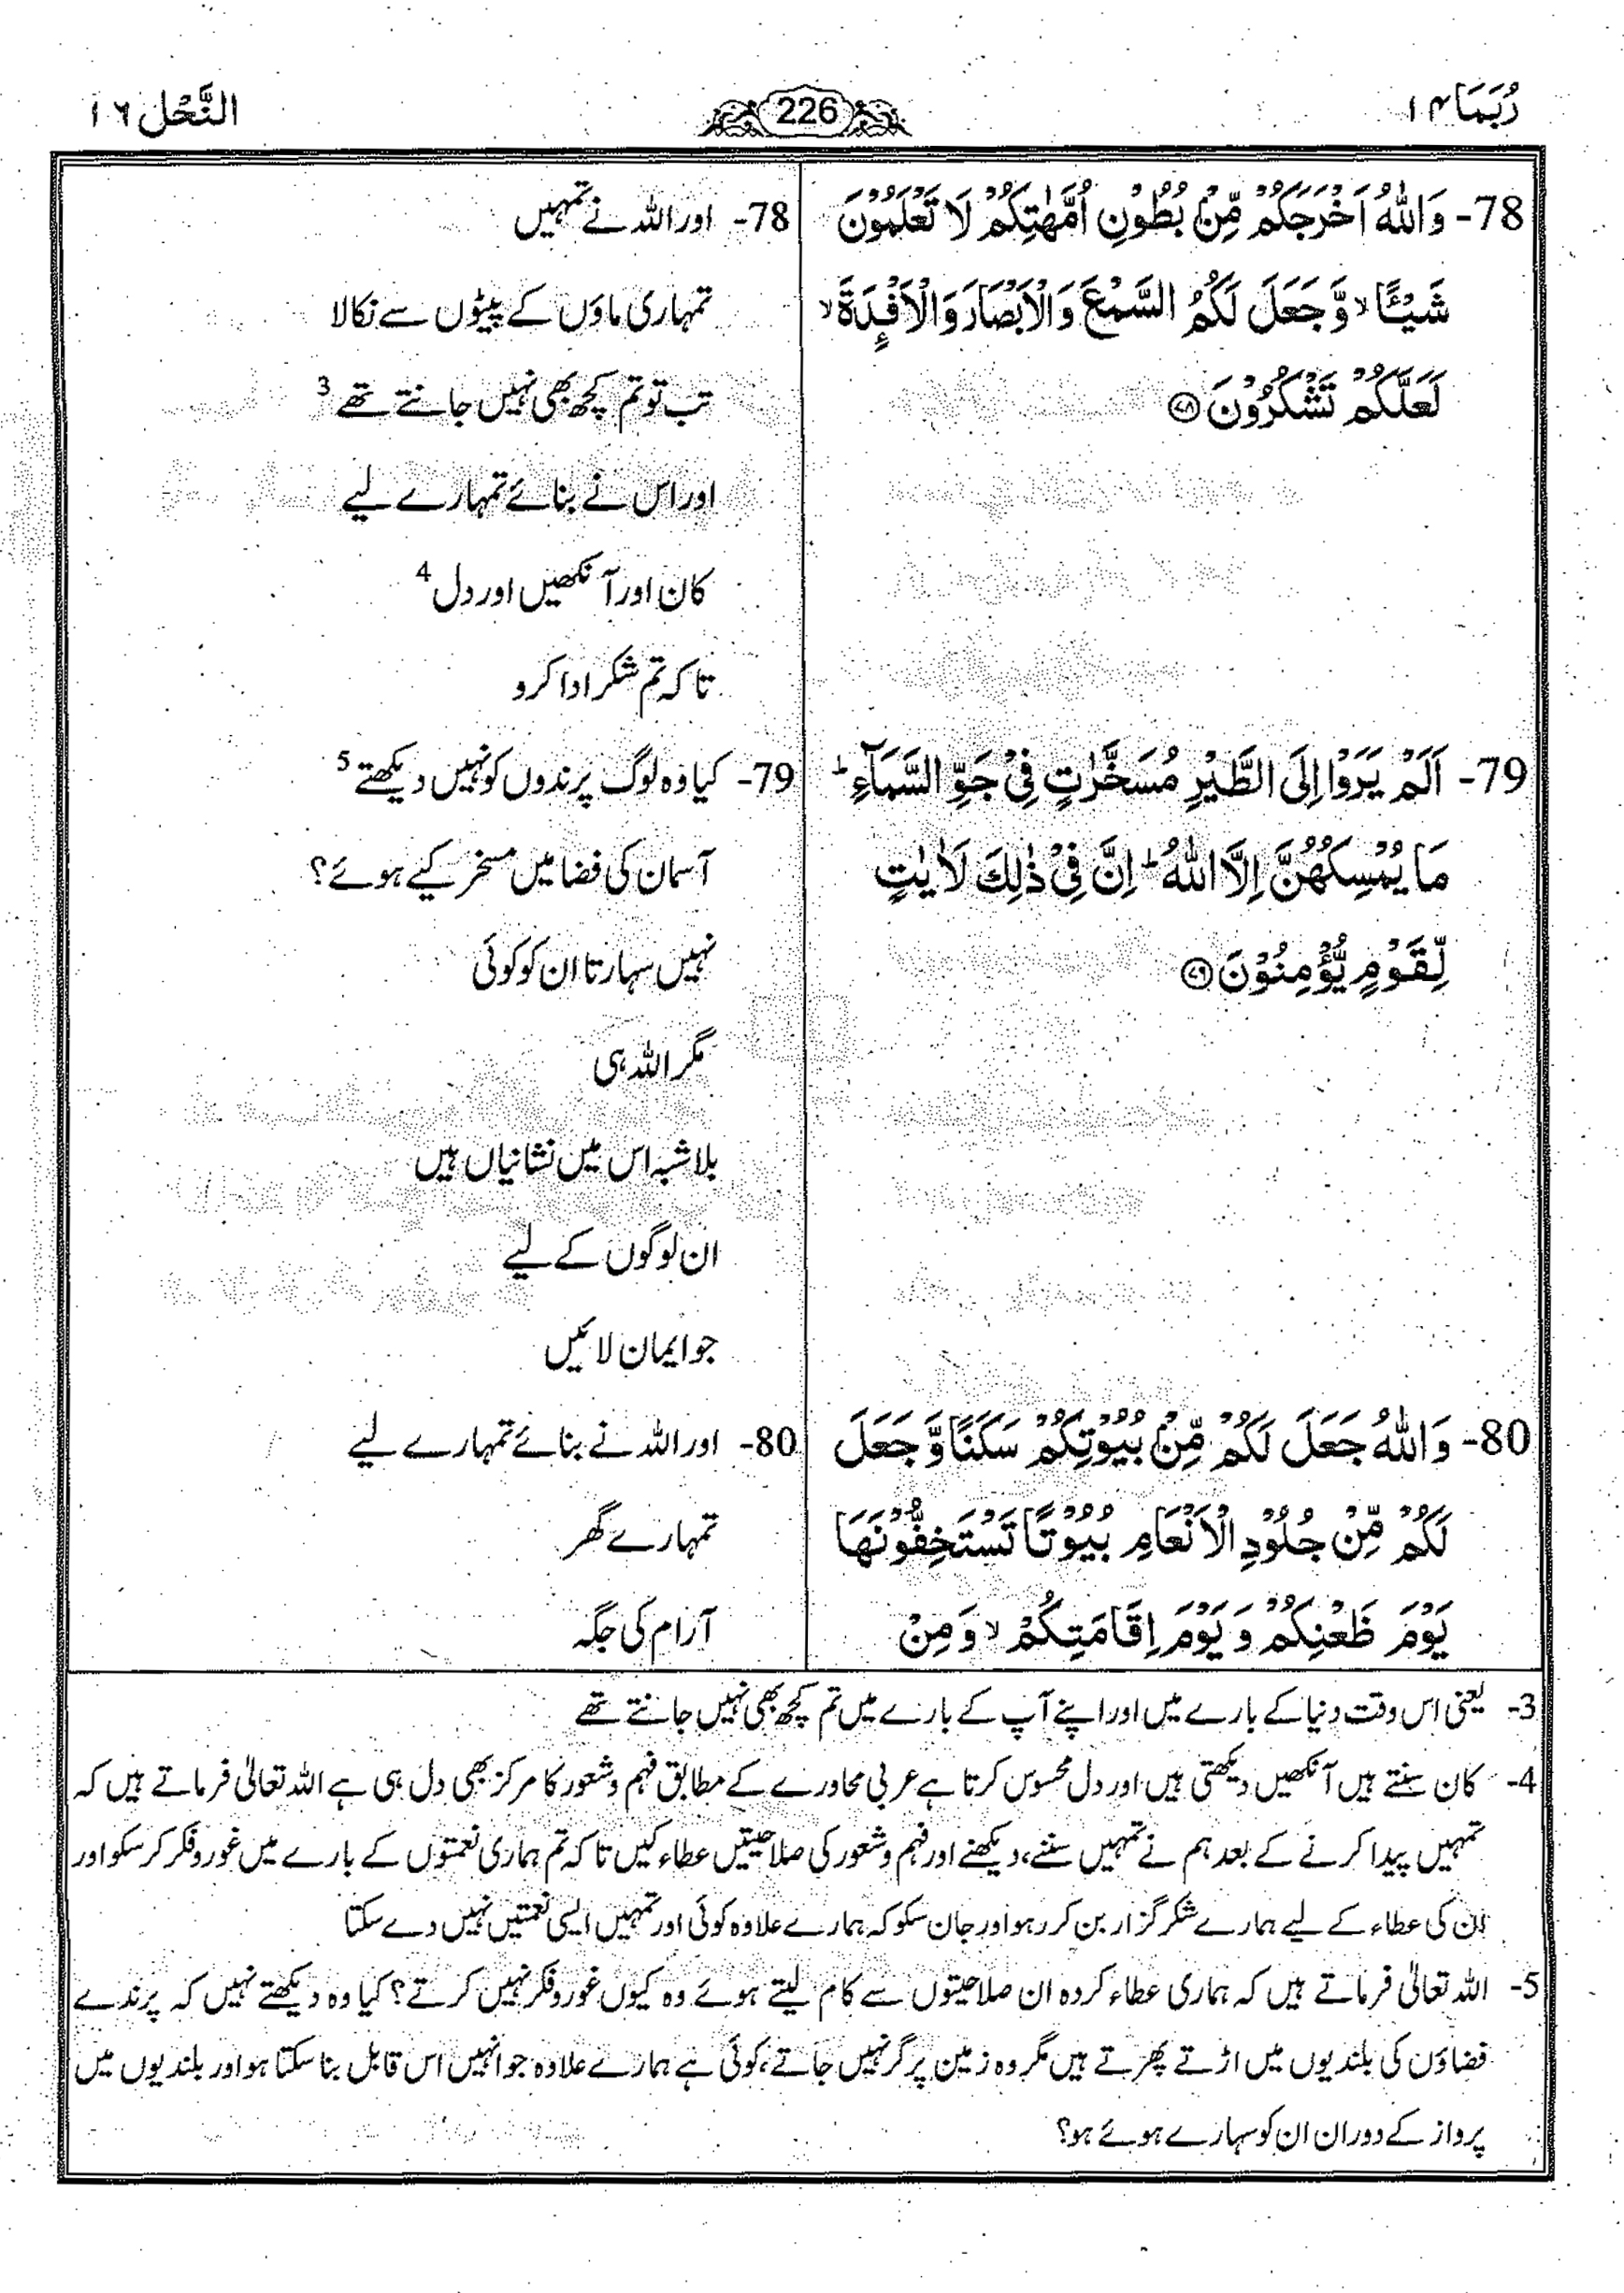 رُبَمَا ١٤
226
النَّحْل ١٦
78- وَاللّٰهُ اَخْرَجَكُمْ مِّنْۢ بُطُوْنِ اُمَّهٰتِكُمْ لَا تَعْلَمُوْنَ
شَيْـًٔا ۙ وَّجَعَلَ لَكُمُ السَّمْعَ وَالْاَبْصَارَ وَالْاَفْـِٕدَةَ ۙ
لَعَلَّكُمْ تَشْكُرُوْنَ ﴿٧٨﴾
78- اور اللہ نے تمہیں
تمہاری ماؤں کے پیٹوں سے نکالا
تب تو تم کچھ بھی نہیں جانتے تھے 3
اور اس نے بنائے تمہارے لیے
کان اور آنکھیں اور دل 4
تاکہ تم شکر ادا کرو
79- اَلَمْ يَرَوْا اِلَى الطَّيْرِ مُسَخَّرٰتٍ فِيْ جَوِّ السَّمَآءِ ؕ
مَا يُمْسِكُهُنَّ اِلَّا اللّٰهُ ؕ اِنَّ فِيْ ذٰلِكَ لَاٰيٰتٍ
لِّقَوْمٍ يُّؤْمِنُوْنَ ﴿٧٩﴾
79- کیا وہ لوگ پرندوں کو نہیں دیکھتے 5
آسمان کی فضا میں مسخر کیے ہوئے؟
نہیں سہارتا ان کو کوئی
مگر اللہ ہی
بلاشبہ اس میں نشانیاں ہیں
ان لوگوں کے لیے
جو ایمان لائیں
80- وَاللّٰهُ جَعَلَ لَكُمْ مِّنْۢ بُيُوْتِكُمْ سَكَنًا وَّجَعَلَ
لَكُمْ مِّنْ جُلُوْدِ الْاَنْعَامِ بُيُوْتًا تَسْتَخِفُّوْنَهَا
يَوْمَ ظَعْنِكُمْ وَيَوْمَ اِقَامَتِكُمْ ۙ وَمِنْ
80- اور اللہ نے بنائے تمہارے لیے
تمہارے گھر
آرام کی جگہ
3- یعنی اس وقت دنیا کے بارے میں اور اپنے آپ کے بارے میں تم کچھ بھی نہیں جانتے تھے
4- کان سنتے ہیں آنکھیں دیکھتی ہیں اور دل محسوس کرتا ہے عربی محاورے کے مطابق فہم و شعور کا مرکز بھی دل ہی ہے اللہ تعالیٰ فرماتے ہیں کہ
تمہیں پیدا کرنے کے بعد ہم نے تمہیں سننے، دیکھنے اور فہم و شعور کی صلاحیتیں عطاء کیں تا کہ تم ہماری نعمتوں کے بارے میں غور و فکر کر سکو اور
ان کی عطاء کے لیے ہمارے شکر گزار بن کر رہو اور جان سکو کہ ہمارے علاوہ کوئی اور تمہیں ایسی نعمتیں نہیں دے سکتا
5- اللہ تعالیٰ فرماتے ہیں کہ ہماری عطاء کردہ ان صلاحیتوں سے کام لیتے ہوئے وہ کیوں غور و فکر نہیں کرتے؟ کیا وہ دیکھتے نہیں کہ پرندے
فضاؤں کی بلندیوں میں اڑتے پھرتے ہیں مگر وہ زمین پر گر نہیں جاتے، کوئی ہے ہمارے علاوہ جو انہیں اس قابل بنا سکتا ہو اور بلندیوں میں
پرواز کے دوران ان کو سہارے ہوئے ہو؟